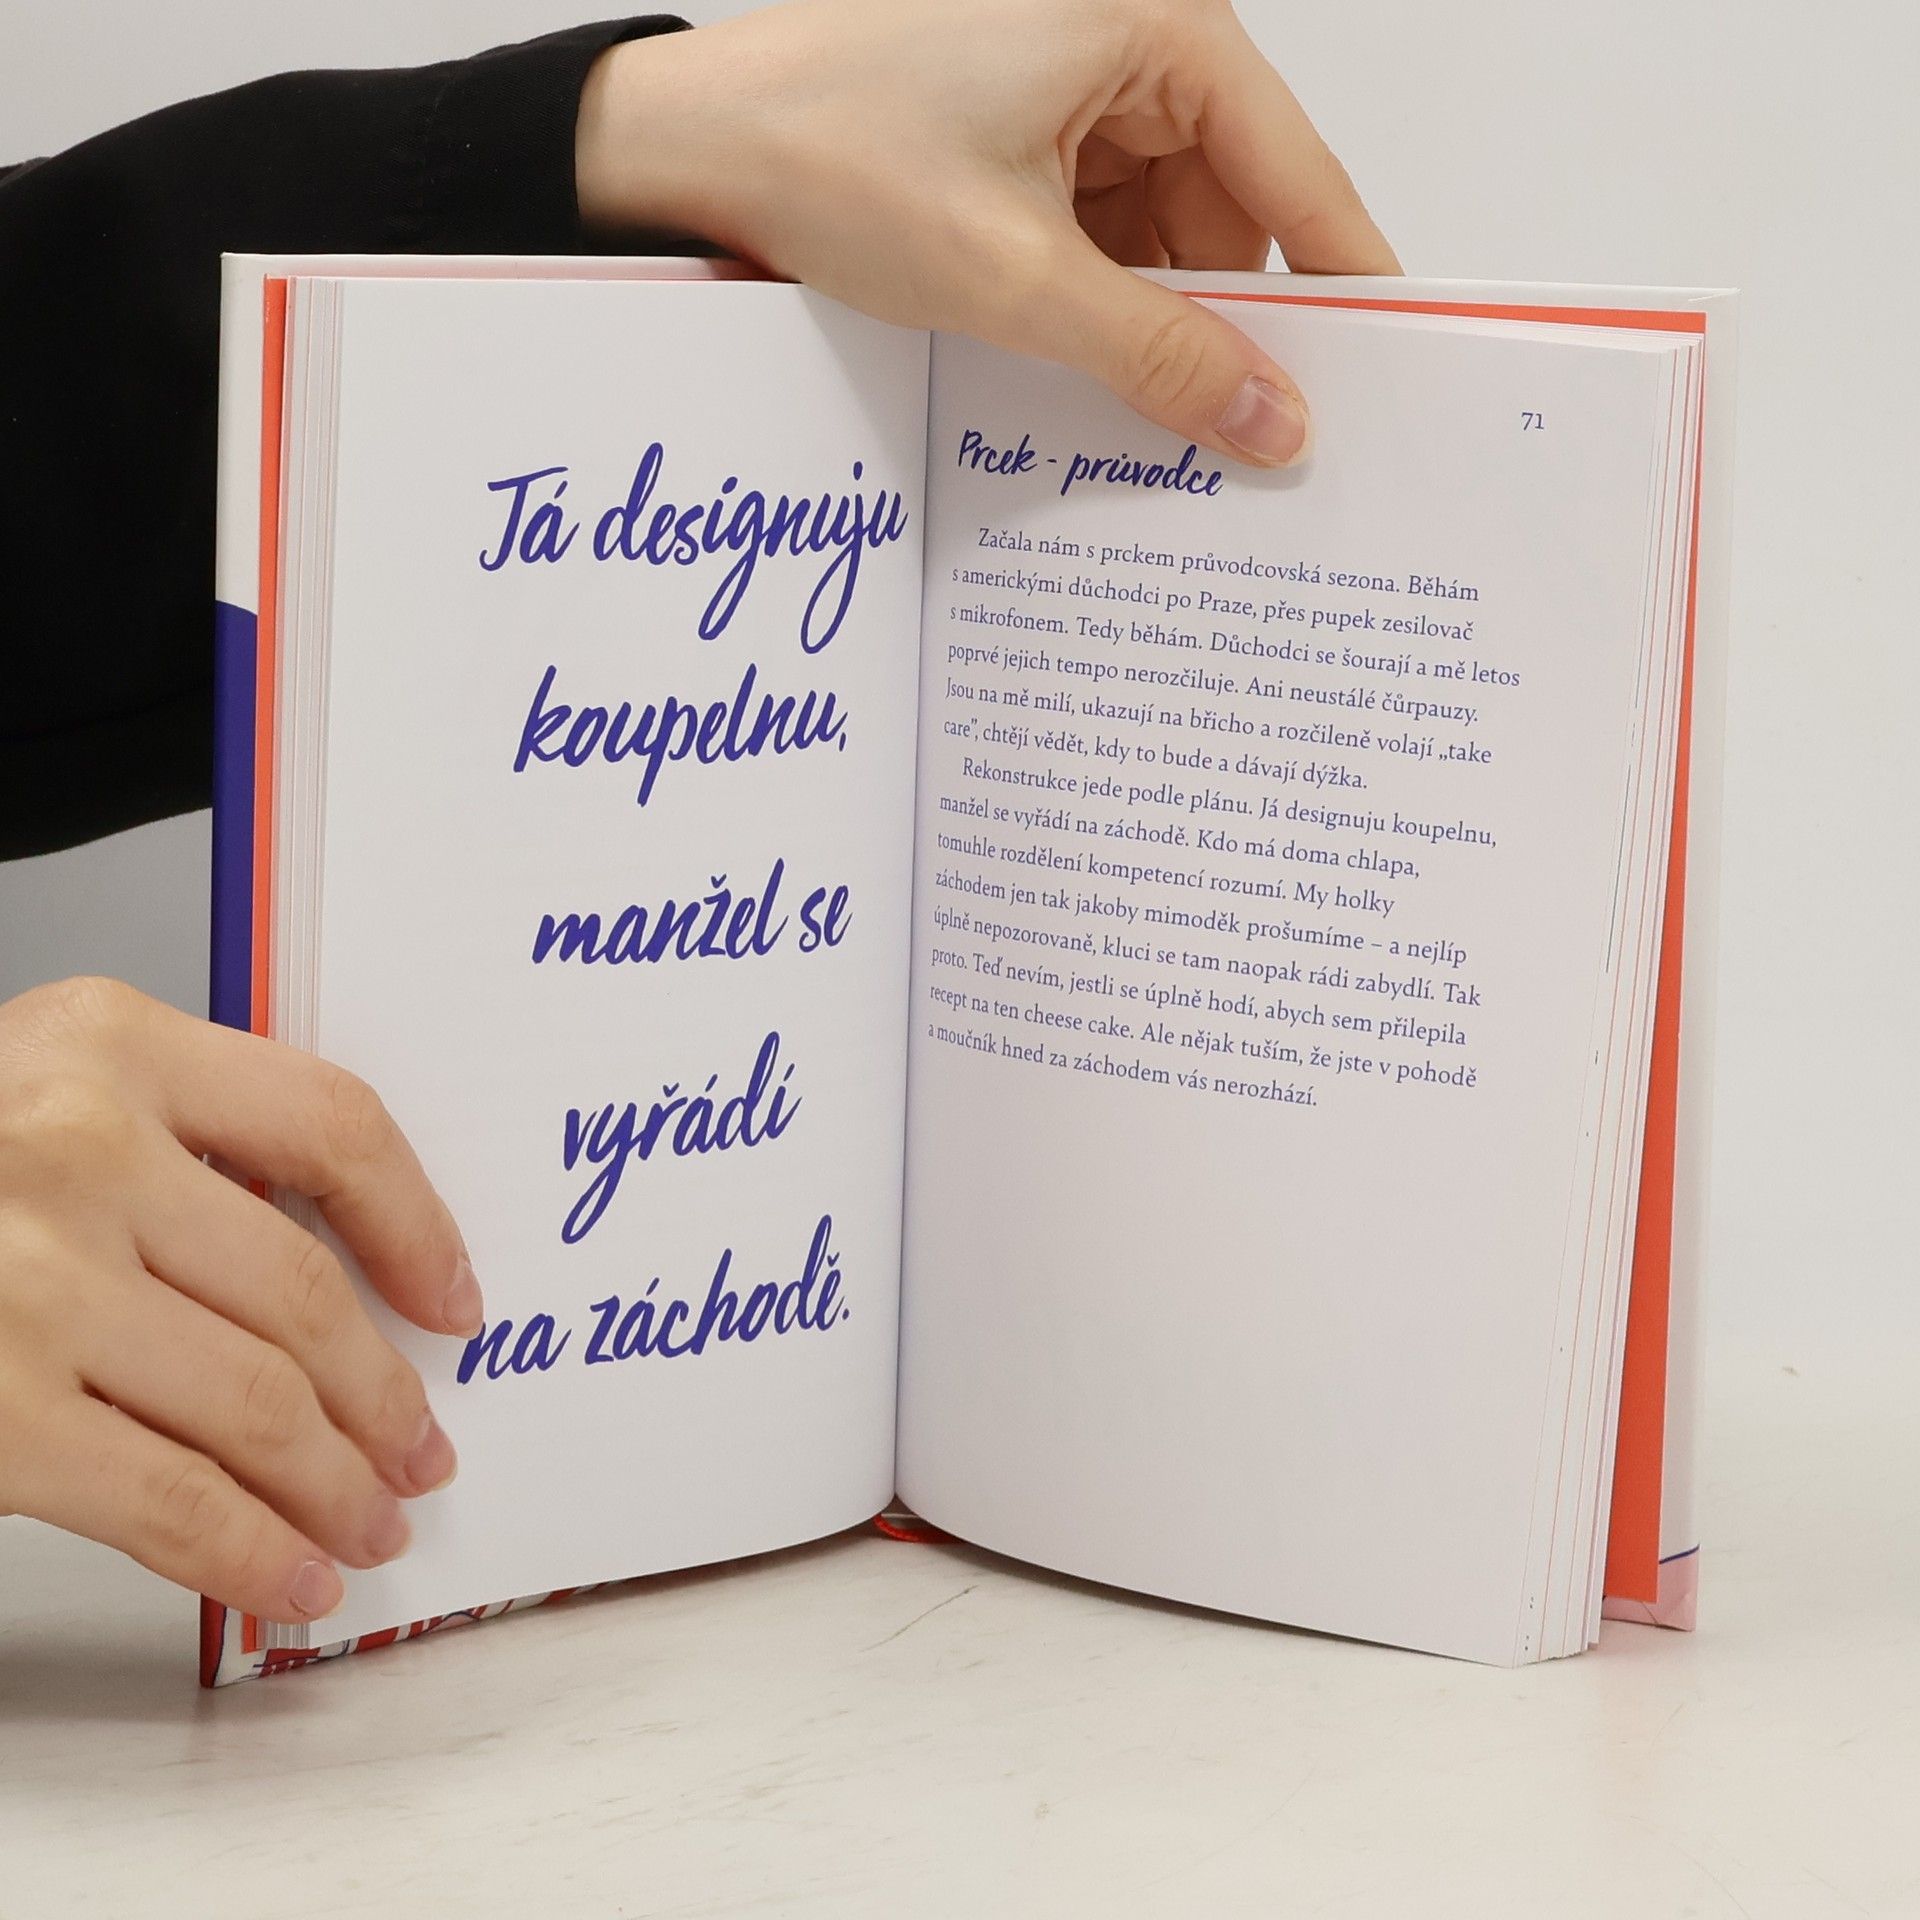 Já designuju
koupelnu,
manžel se
vyřádí
na záchodě.
71
Prcek - průvodce
Začala nám s prckem průvodcovská sezona. Běhám
s americkými důchodci po Praze, přes pupek zesilovač
s mikrofonem. Tedy běhám. Důchodci se šourají a mě letos
poprvé jejich tempo nerozčiluje. Ani neustálé čůrpauzy.
Jsou na mě milí, ukazují na břicho a rozčileně volají „take
care”, chtějí vědět, kdy to bude a dávají dýžka.
Rekonstrukce jede podle plánu. Já designuju koupelnu,
manžel se vyřádí na záchodě. Kdo má doma chlapa,
tomuhle rozdělení kompetencí rozumí. My holky
záchodem jen tak jakoby mimoděk prošumíme – a nejlíp
úplně nepozorovaně, kluci se tam naopak rádi zabydlí. Tak
proto. Teď nevím, jestli se úplně hodí, abych sem přilepila
recept na ten cheese cake. Ale nějak tuším, že jste v pohodě
a moučník hned za záchodem vás nerozhází.